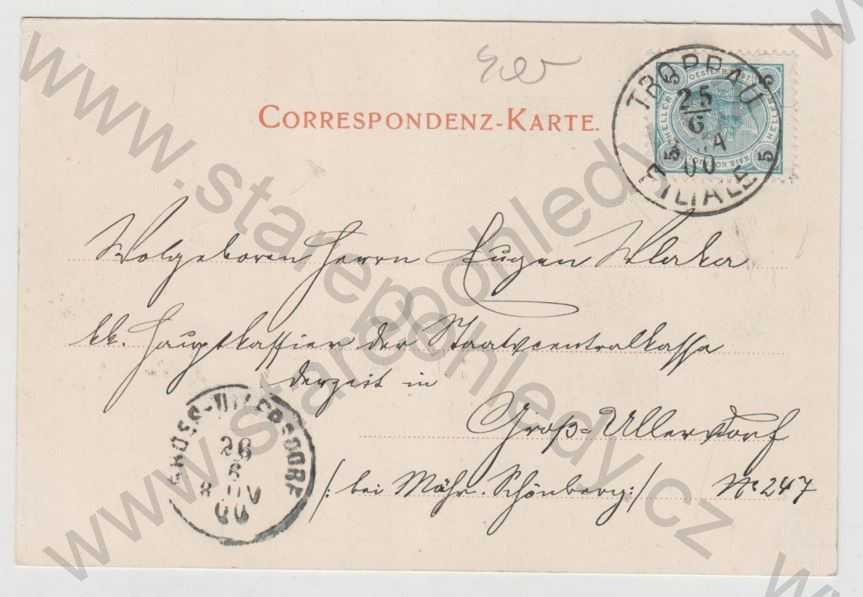 CORRESPONDENZ-KARTE.
TROPPAU
25
6
00
FILIALE
5 5
Wolgeboren Herrn Eugen Wlaka
kk. Hauptkassier der Staatscentralkassa
derzeit in
Groß-Ullersdorf
/: bei Mähr. Schönberg :/ No 247
GROSS-ULLERSDORF
26
6
00
www.starepohledy.cz